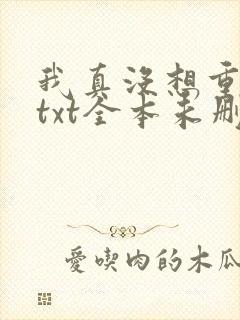 我真没想重
txt全本未删
爱喫肉的木瓜